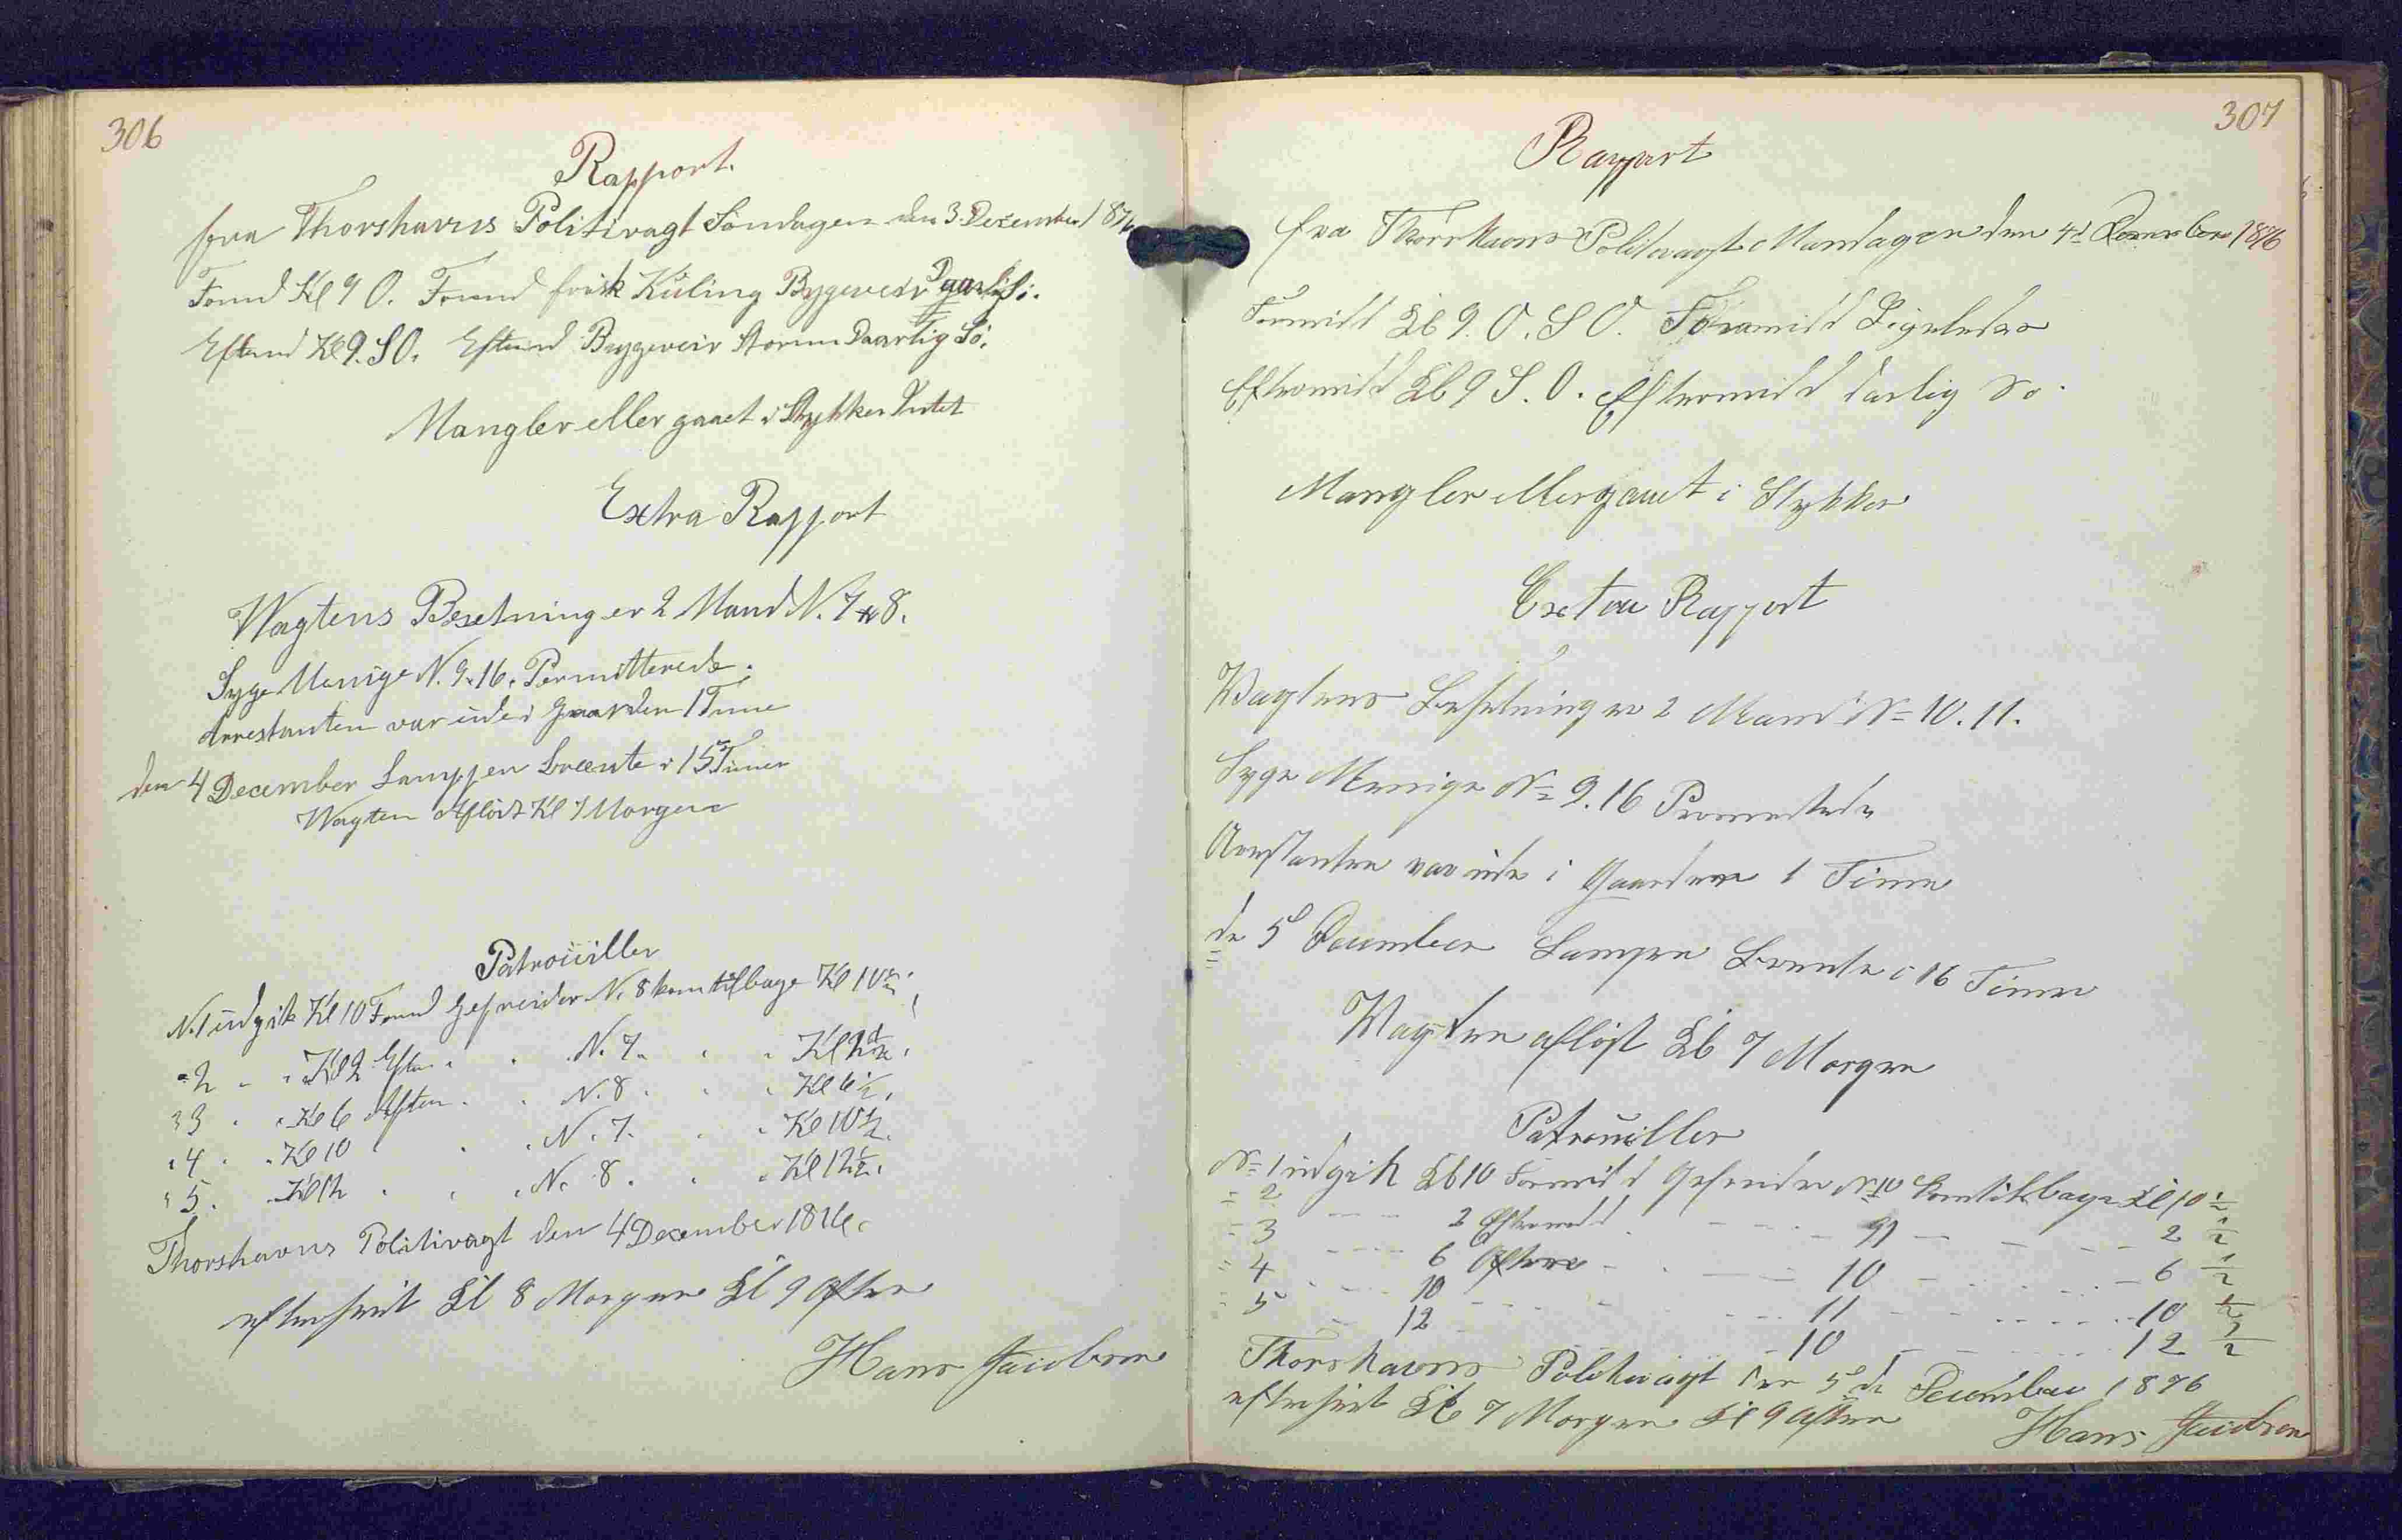 306
Rapport.
fra Thorshavns Politivagt Søndagen den 3 December 1876
Formd Kl 9 O. Formd frisk Kuling Bygeveir Daarlig Sö.
Eftmd Kl 9. SO. Eftmd Bygeveir Storm Daarlig Sö.
Mangler eller gaaet i Stykker Intet
Extra Rapport
Wagtens Besetning er 2 Mand N. 7 & 8.
Syge Menige N. 9. 16. Permitterede.
Arrestanten var ude i Gaarden 1 Time
den 4 December Lampen brænte i 15 Timer
Wagten Aflöst Kl 7 Morgen
Patrouiller
N. 1 udgik Kl 10 Formd Gefreider N. 8 kom tilbage Kl 10 1/2.
" 2 " " Kl 2 Eftm. " " N. 7. " " Kl 2 1/2.
" 3 " " Kl 6 Aften. " " N. 8. " " Kl 6 1/2.
" 4 " " Kl 10 " " N. 7. " " Kl 10 1/2.
" 5. " Kl 12 " " " N. 8. " " Kl 12 1/2.
Thorshavns Politivagt den 4 December 1876.
efterseet Kl 8 Morgen Kl 9 Aften
Hans Jacobsen
307
Rapport
fra Thorshavns Politivagt Mandagen den 4d December 1876
Formidd Kl 9. O. S O. Formidd Ligeledes
Eftermidd Kl 9 S. O. Eftermidd darlig So.
Mangler eller gaaet i Stykker
Extra Rapport
Wagtens Besetning er 2 Mand No 10. 11.
Syge Menige No 9. 16
Arrestanten var ude i Gaarden 1 Time
de 5 December Lampen Brente i 16 Timer
Wagten afløst Kl 7 Morgen
Patrouiller
No 1 udgik Kl 10 Formidd Gefreider No 10 kom tilbage Kl 10 1/2
" 2 - - - 2 Eftermidd - - - 11 - - - 2 1/2
" 3 - - - 6 Aften - - - 10 - - - 6 1/2
" 4 - - - 10 - - - 11 - - - 10 1/2
" 5 - 12 - - - 10 - - - 12 1/2
Thorshavns Politivagt den 5 de December 1876
efterseet Kl 7 Morgen Kl 9 Aften
Hans Jacobsen